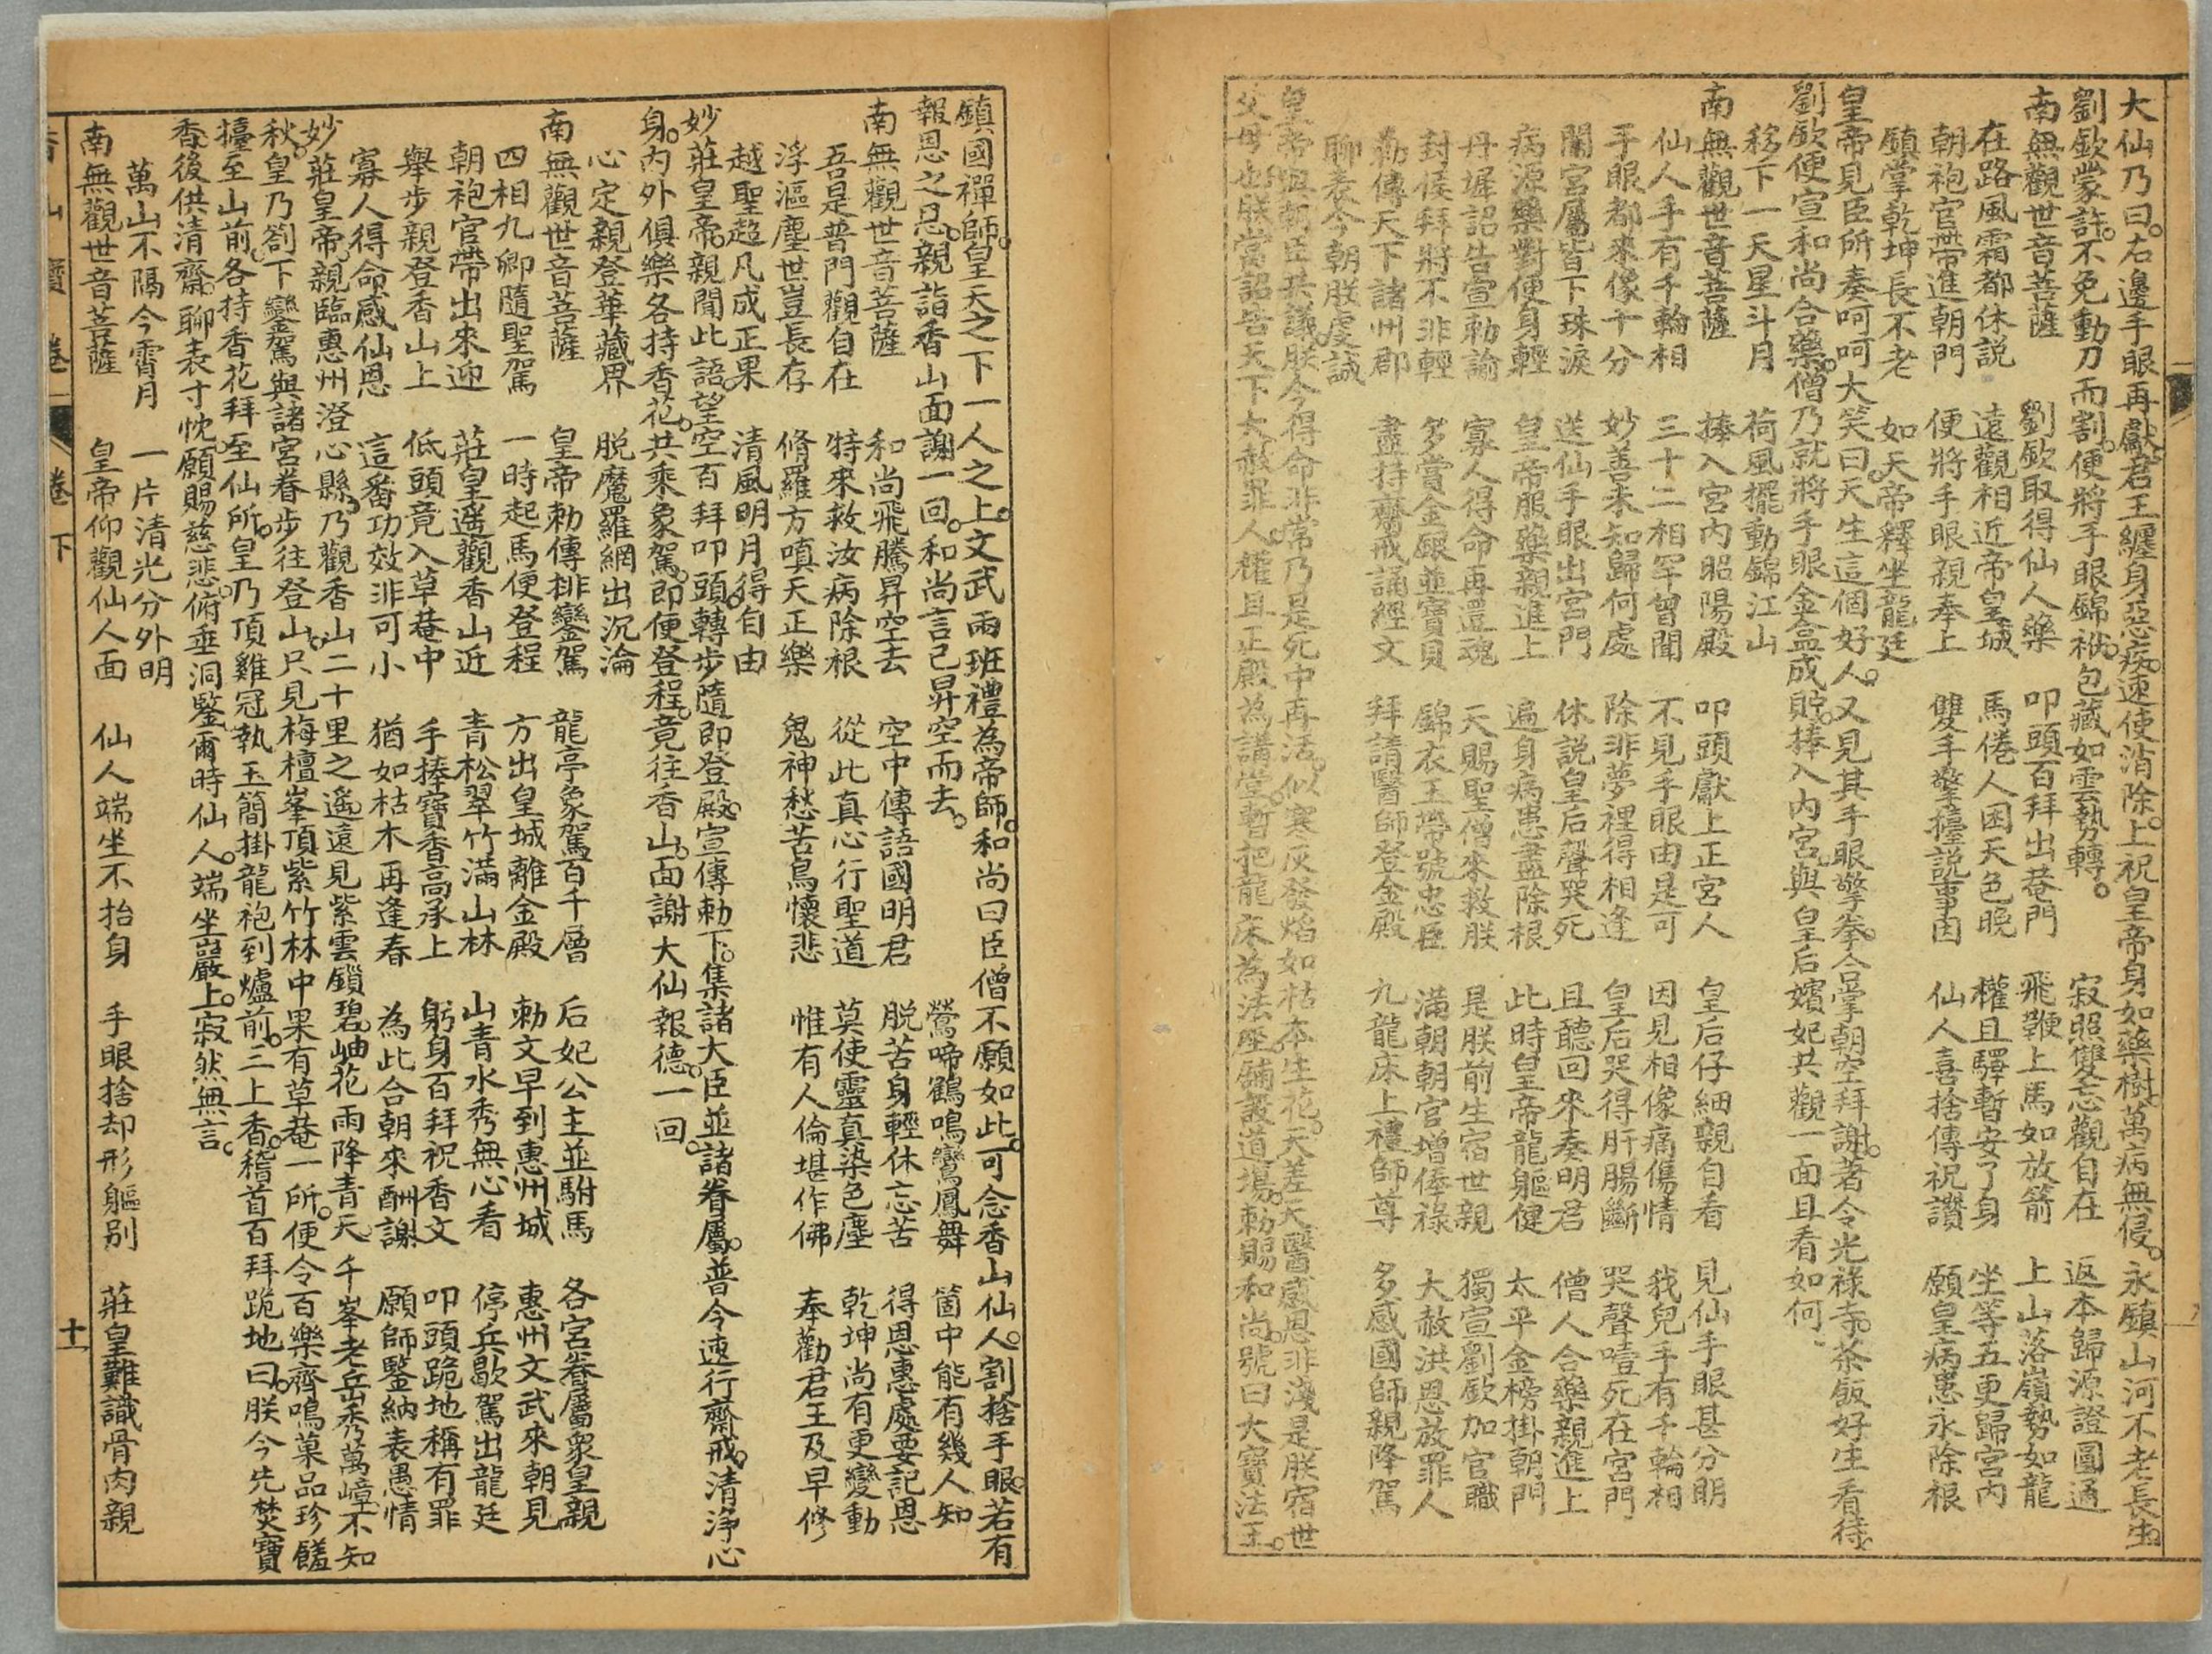 大仙乃曰。右邊手眼再獻君王纏身惡病。速使消除。上祝皇帝身如藥樹。萬病無侵。永鎮山河不老長生。
劉欽蒙許。不免動刀而割。便將手眼錦袱。包藏如雲勢轉。
南無觀世音菩薩　劉欽取得仙人藥　叩頭百拜出菴門　寂照雙忘觀自在　返本歸源證圓通
在路風霜都休説　遠觀相近帝皇城　馬倦人困天色晚　飛鞭上馬如放箭　上山落嶺勢如龍
朝袍官帶進朝門　便將手眼親奉上　雙手擎擡説事因　權且驛暫安了身　坐等五更歸宮内
鎮掌乾坤長不老　如天帝釋坐龍廷　仙人喜捨傳祝讚　願皇病患永除根
皇帝見臣所奏呵呵大笑曰。天生這個好人。又見其手眼擎拳。合掌朝空拜謝。著令光祿寺。茶飯好生看待。
劉欽便宣和尚合藥。僧乃就將手眼金盒成貯。捧入内宮。與皇后嬪妃共觀一面且看如何。
移下一天星斗月　荷風擺動錦江山
南無觀世音菩薩　捧入宮内昭陽殿　叩頭獻上正宮人　皇后仔細親自看　見仙手眼甚分明
仙人手有千輪相　三十二相罕曾聞　不見手眼由是可　因見相像痛傷情　我兒手有千輪相
手眼都來像十分　妙善未知歸何處　除非夢裡得相逢　皇后哭得肝腸斷　哭聲噎死在宮門
闔宮屬皆下珠淚　送仙手眼出宮門　休説皇后聲哭死　且聽回來奏明君　僧人合藥親進上
病源藥對便身輕　皇帝服藥親進上　遍身病患盡除根　此時皇帝龍軀健　太平金榜掛朝門
丹墀詔告宣勅諭　寡人得命再還魂　天賜聖僧來救朕　是朕前生宿世親　獨宣劉欽加官職
封侯拜將不非輕　多賞金銀並寶貝　錦衣玉帶號忠臣　滿朝朝官增俸祿　大赦洪恩放罪人
勅傳天下諸州郡　盡持齋戒誦經文　拜請醫師登金殿　九龍床上禮師尊　多感國師親降駕
聊表今朝朕虔誠
皇帝與朝臣共議。朕今得命非常。乃是死中再活。似寒灰發焰如枯木生花。天差天醫感恩非淺是朕宿世
父母也。朕當詔告天下大赦罪人。權且正殿為講堂。暫把龍床為法座。鋪設道場。勅賜和尚。號曰大寶法王。
鎮國禪師。皇天之下一人之上。文武兩班禮為帝師。和尚曰臣僧不願如此。可念香山仙人。割捨手眼。若有
報恩之忍。親詣香山面謝一回。和尚言已昇空而去。
南無觀世音菩薩　和尚飛騰昇空去　空中傳語國明君　鶯啼鶴鳴鸞鳳舞　箇中能有幾人知
吾是普門觀自在　特來救汝病除根　從此真心行聖道　脱苦身輕休忘苦　得恩惠處要記恩
浮漚塵世豈長存　脩羅方嗔天正樂　鬼神愁苦鳥懷悲　莫使靈真染色塵　乾坤尚有更變動
越聖超凡成正果　清風明月得自由　惟有人倫堪作佛　奉勸君王及早修
妙莊皇帝。親聞此語。望空百拜叩頭。轉步隨即登殿。宣傳勅下。集諸大臣並諸眷屬。普令速行齋戒。清淨心
身。内外俱樂各持香花。共乘象駕。即便登程。竟往香山。面謝大仙報德。一回。
心定親登華藏界　脱魔羅網出沉淪
南無觀世音菩薩　皇帝勅傳排鑾駕　龍亭象駕百千層　后妃公主並駙馬　各宮眷屬衆皇親
四相九卿隨聖駕　一時起馬便登程　方出皇城離金殿　勅文早到惠州城　惠州文武來朝見
朝袍官帶出來迎　莊皇遥觀香山近　青松翠竹滿山林　山青水秀無心看　停兵歇駕出龍廷
舉步親登香山上　低頭竟入草菴中　手捧寶香高承上　躬身百拜祝香文　叩頭跪地稱有罪
寡人得命感仙恩　這番功效非可小　猶如枯木再逢春　為此合朝來酬謝　願師鑒納表愚情
妙莊皇帝。親臨惠州澄心縣。乃觀香山二十里之遥。遠見紫雲鎖碧。岫花雨降青天。千峯老丘山秀萬嶂。不知
秋。皇乃劄下鑾駕與諸宮眷步往登山。只見梅檀峯頂紫竹林中果有草菴一所。便令百樂齊鳴菓品珍饈
擡至山前。各持香花拜至仙所。皇乃頂雞冠執玉簡掛龍袍到爐前。三上香。稽首百拜跪地曰。朕今先焚寶
香。後供清齋。聊表寸忱。願賜慈悲。俯垂洞鑒爾時仙人。端坐巖上。寂然無言。
萬山不隔今霄月　一片清光分外明
南無觀世音菩薩　皇帝仰觀仙人面　仙人端坐不抬身　手眼捨却形軀别　莊皇難識骨肉親
香山寶卷　卷下　十一